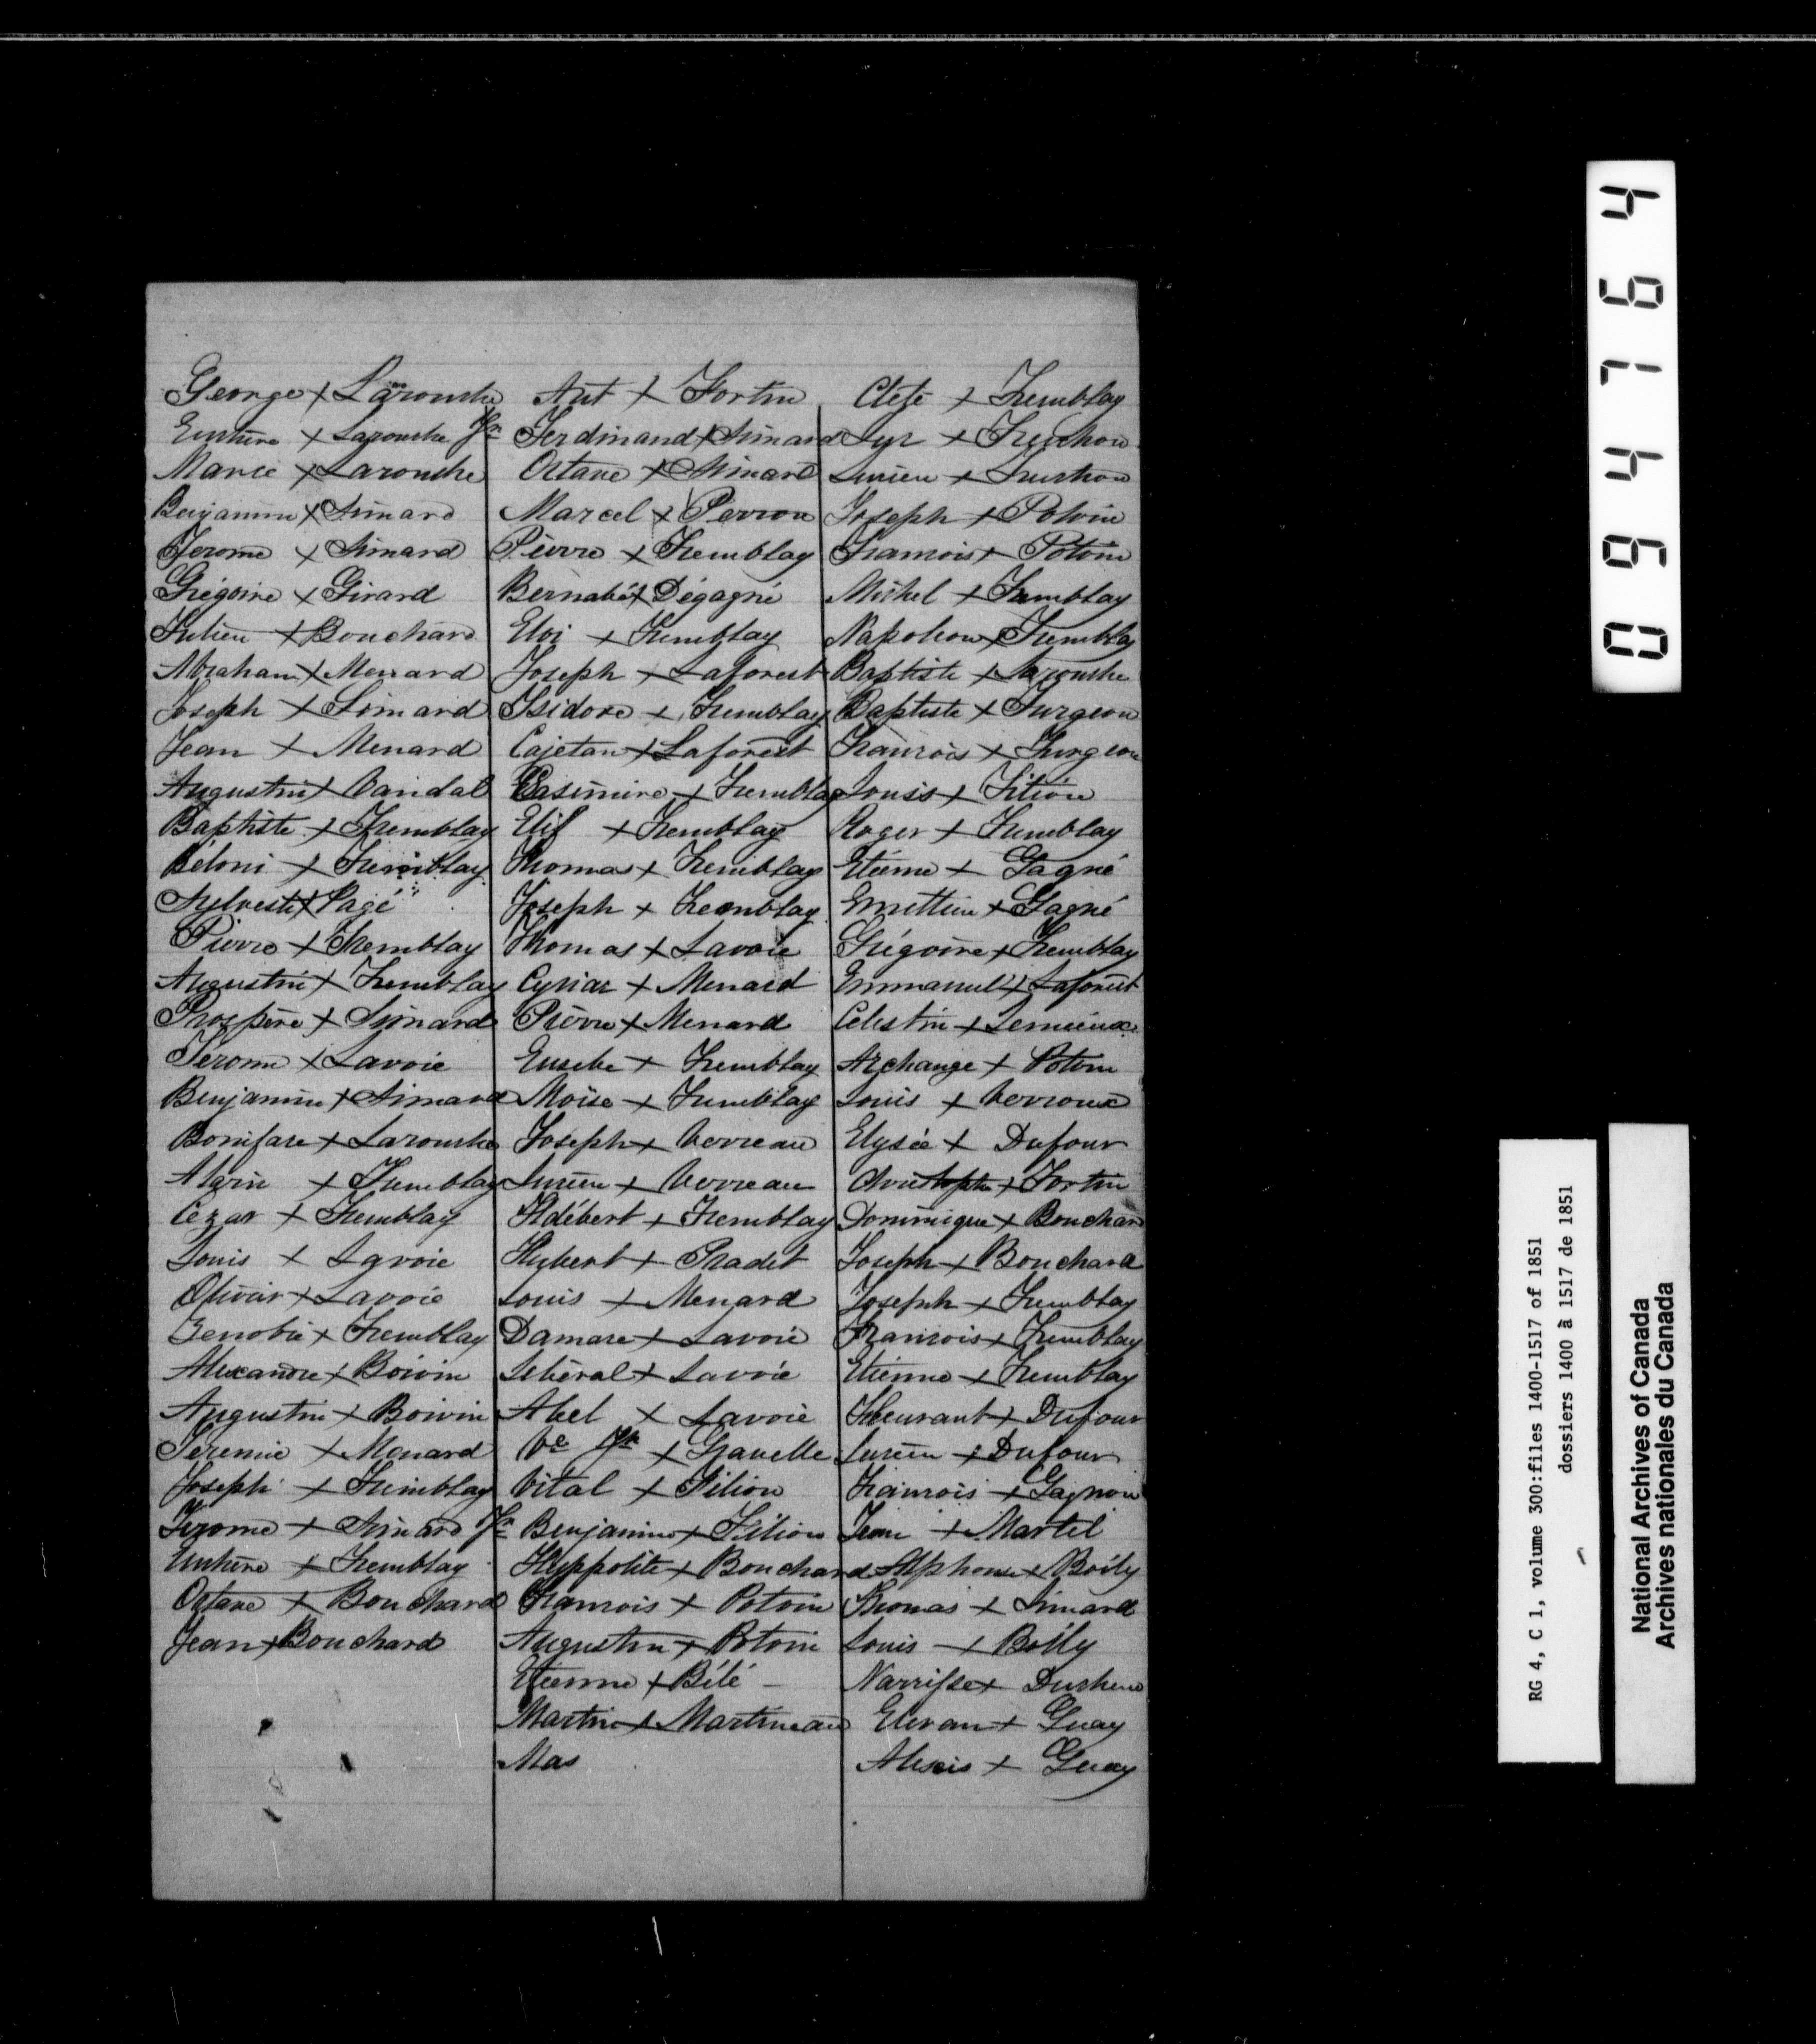 George + Larouche
Eusture + Larouche Jr
Marcé + Larouche
Benjamin + Simard
Jerome + Simard
Grégoire + Girard
Julien + Bouchard
Abraham + Menard
Joseph + Simard
Jean + Menard
Augustin + Vandal
Baptiste + Tremblay
Béloni + Tremblay
Sylveste + Pagé
Pierre + Tremblay
Augustin + Tremblay
Prospère + Symard
Jerome + Lavoie
Benjamin + Simard
Boniface + Larouche
Alarin + Tremblay
Cezar + Tremblay
Louis + Lavoie
Olivier + Lavoie
Zenobie + Tremblay
Alexandre + Boivin
Augustin + Boivin
Jeremie + Menard
Joseph + Tremblay
Jerome + Simard Jr
+ Tremblay
Octave + Bouchard
Jean + Bouchard
Ant + Fortin
Ferdinand + Simard
Octave + Simard
Marcel + Perron
Pierre + Tremblay
Bernabé + Dégagné
Eloi + Tremblay
Joseph + Laforest
Isidore + Tremblay
Cajetan + Laforest
Casimire + Tremblay
Elif + Tremblay
Thomas + Tremblay
Joseph + Tremblay
Thomas + Lavoie
Cyriac + Menard
Pierre + Menard
Eusebe + Tremblay
Moïse + Tremblay
Joseph + Verreau
Lucien + Verreau
Hdébert + Tremblay
Hubert + Pradet
Louis + Menard
Damase + Lavoie
Libéral + Lavoie
Abel + Lavoie
Ve Jn + Gravelle
Vital + Filion
Benjamin + Filion
Hyppolite + Bouchard
Francois + Potvin
Augustin + Potvin
Etienne + Bélé
Martin + Martineau
Mas
Clefe + Tremblay
Cyr + Truchon
Lucien + Truchon
Joseph + Potvin
Francois + Potvin
Michel + Tremblay
Napoleon + Tremblay
Baptiste + Larouche
Baptiste + Turgeon
Francois + Turgeon
Louis + Filion
Roger + Tremblay
Etienne + Gagné
+ Gagné
Grégoire + Tremblay
Emmanuel + Laforest
Celestin + Lemieux
Archange + Potvin
Louis + Verroux
Elysée + Dufour
Christophe + Fortin
Dominique + Bouchard
Joseph + Bouchard
Joseph + Tremblay
Francois + Tremblay
Etienne + Tremblay
Fleurant + Dufour
Lucien + Dufour
Francois + Gagnon
Jean + Martel
Alphonse + Boily
Thomas + Simard
Louis + Boily
Narcisse + Duchene
Elevan + Guay
Alexis + Guay
094764
RG 4, C 1, volume 300:files 1400-1517 of 1851
dossiers 1400 à 1517 de 1851
National Archives of Canada
Archives nationales du Canada